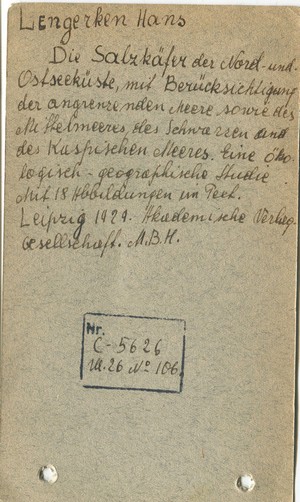 Lengerken Hans
Die Salzkäfer der Nord- und
Ostseeküste, mit Berücksichtigung
der angrenzenden Meere sowie des
Mittelmeeres, des Schwarzen und
des Kaspischen Meeres. Eine öko-
logisch-geographische Studie.
Mit 18 Abbildungen im Text.
Leipzig 1929. Akademische Verlag-
Gesellschaft. M.B.H.
Nr.
C-5626
№ 106